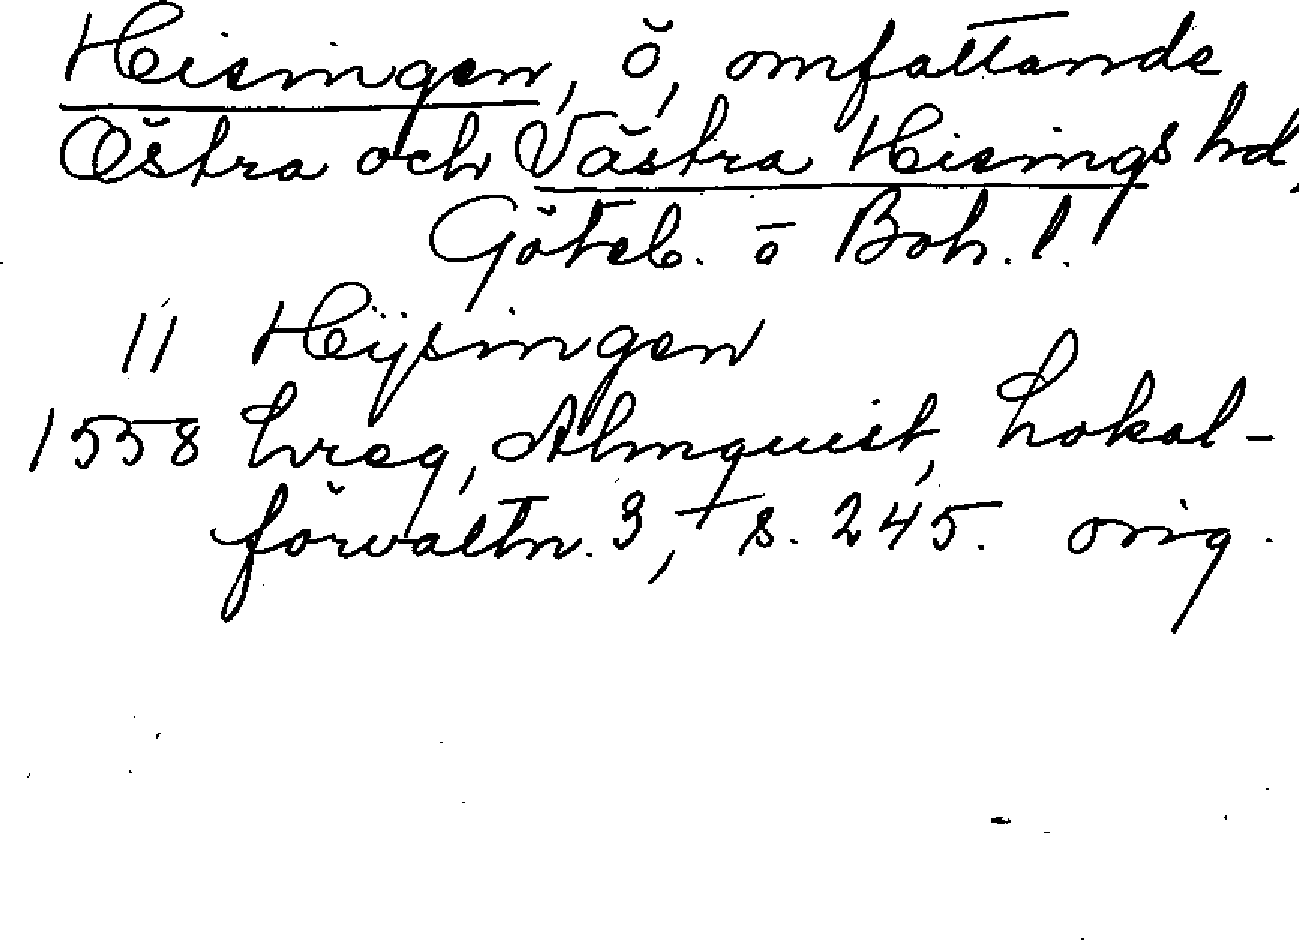 Hisingen, ö, omfattande
Östra och Västra Hisings hd,
Göteb. o Boh. l.
11 Hÿsingen
1558 Lvreg, Almquist, Lokal-
förvaltn. 3, s. 245. orig.